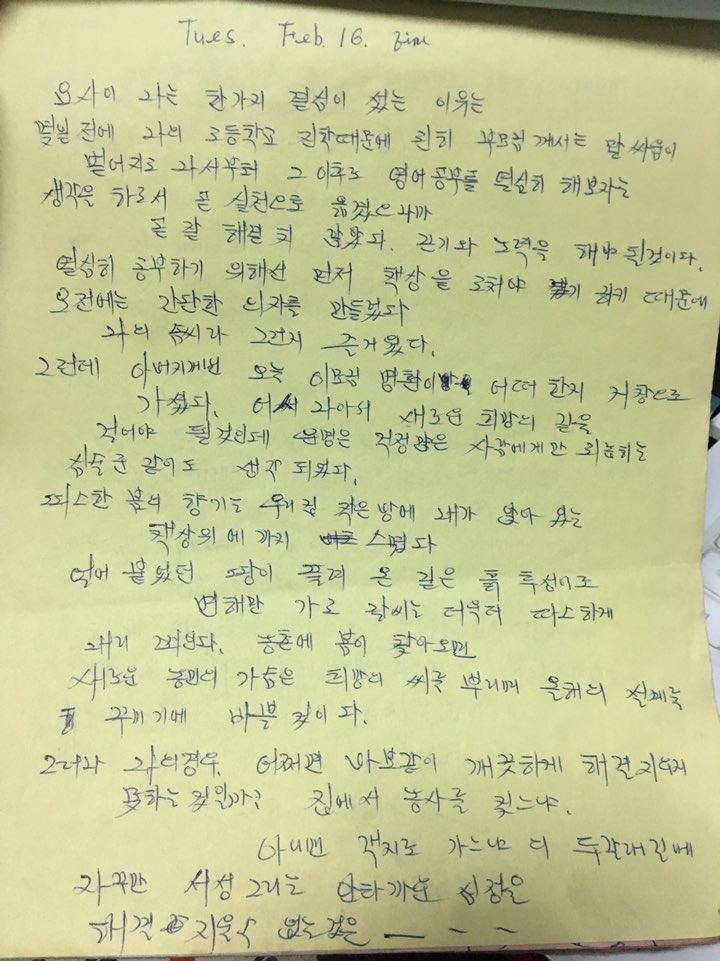 Tues. Feb. 16.
요사이 나는 한가지 결심이 섰는 이유는
몇일 전에 나의 고등학교 진학때문에 부모님 께서는 말 싸움이
벌어지고 나서부터 그 이후로 영어공부를 열심히 해보자는
생각을 하고서 곧 실천으로 옮겼으니까
곧 잘 해결 치 않았다. 끈기와 노력을 해야 될것이다.
열심히 공부하기 위해선 먼저 책상을 고쳐야 하기 때문에
오전에는 간단한 의자를 만들었다
나의 솜씨라 그런지 즐거웠다.
그런데 아버지께선 오늘 이모님 병환이 어떠 한지 거창으로
가셨다. 나아서 새로운 희망의 길을
걷어야 될것인데 운명은 걱정많은 사람에게만
심술꾼 같이도 생각 되었다.
따스한 봄의 향기는 우리집 작은 방에 내가 앉아 있는
책상위 에 까지 스몄다
얼어 붙었던 땅이 풀려 온 길은 흙 투성이로
변해만 가고 날씨는 더욱더 따스하게
내리 쪼인다. 농촌에 봄이 찾아오면
새로운 농민의 가슴은 희망의 씨를 뿌리며 올해의 설계를
꾸미기에 바쁠 것이다.
그러나 나의경우. 어쩌면 바보같이 깨끗하게 해결지우지
못하는 것일까? 집에서 농사를 짓느냐.
아니면 객지로 가느냐 이 두갈래길에
자꾸만 서성 그리는 안타까운 심정을
해결 지울수 없는것은 ㅡ - - -